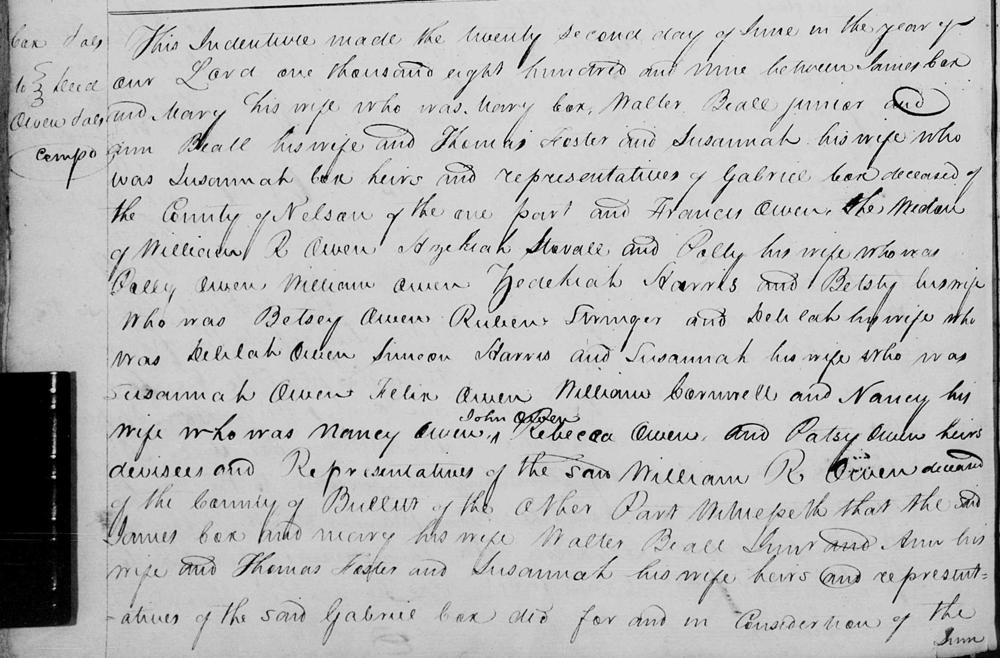 Cox & als
to } Deed
Owen & als
Comp'd
This Indenture made the twenty second day of June in the year of
our Lord one thousand eight hundred and nine between James Cox
and Mary his wife who was Mary Cox, Walter Beall junior and
Ann Beall his wife and Thomas Foster and Susannah his wife who
was Susannah Cox heirs and representatives of Gabriel Cox deceased of
the County of Nelson of the one part and Francis Owen, the Widow
of William R Owen Hezekiah Stovall and Polly his wife who was
Polly Owen William Owen Zedekiah Harris and Betsy his wife
who was Betsey Owen Ruben Stringer and Delilah his wife who
was Delilah Owen Simeon Harris and Susannah his wife who was
Susannah Owen Felix Owen William Cornwell and Nancy his
John Owen
wife who was Nancy Owen, Rebecca Owen, and Patsy Owen heirs
devisees and Representatives of the said William R Owen deceased
of the County of Bullitt of the Other Part Witnesseth that the said
James Cox and Mary his wife Walter Beall Junr and Ann his
wife and Thomas Foster and Susannah his wife heirs and represent=
-atives of the said Gabriel Cox did for and in Consideration of the
Sum